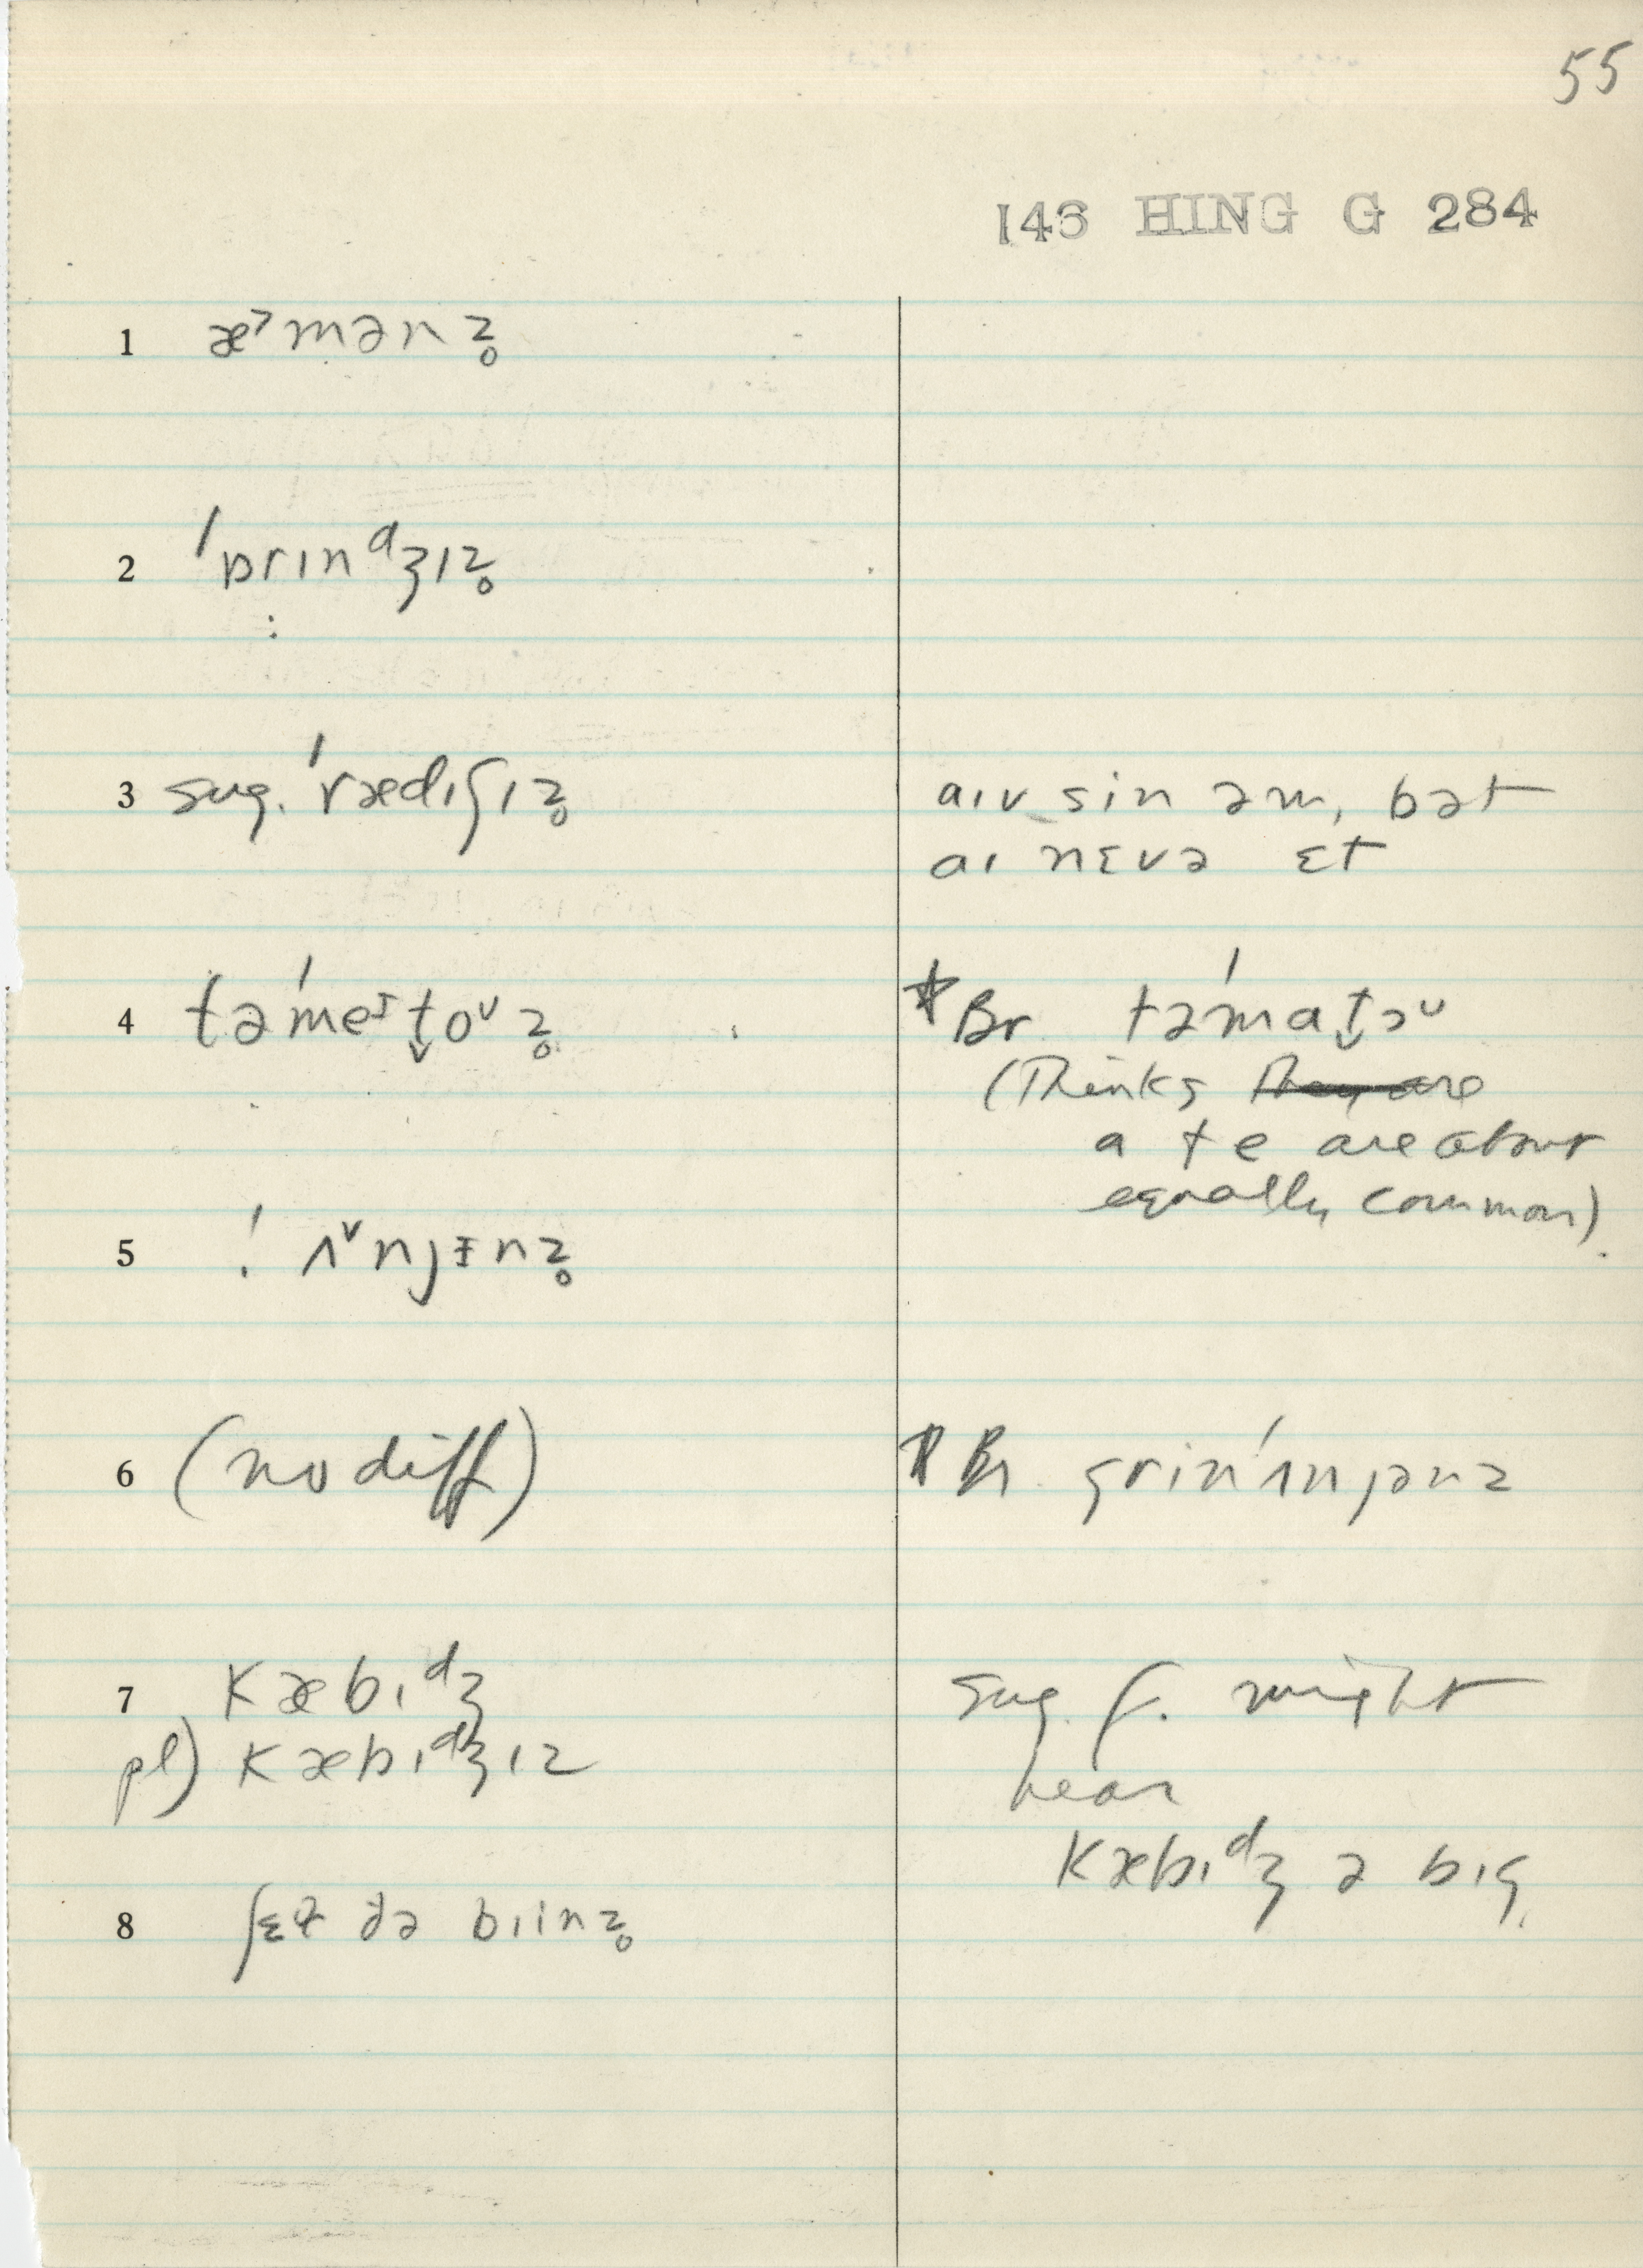 55
146 HING G 284
1 æ˃mənz̥
2 ˈɒrɪnᵈʒɪz̥
3 sug. ˈrædɪʃɪz̥
aɪv sin əm, bət
aɪ nɛvə ɛt
4 təˈmeᶦt̬oᵁz̥
* Br təˈmat̬əᵁ
(Thinks they are
a + e are about
equally common).
5 ˈʌ˅njɪnz̥
6 (no diff)
* Br. grinˈʌnjənz
7 kæbɪᵈʒ
pl) kæbɪᵈʒɪz
sug. f. might
hear
kæbɪᵈʒ ə bɪg
8 ʃɛɫ ðə bɪinz̥